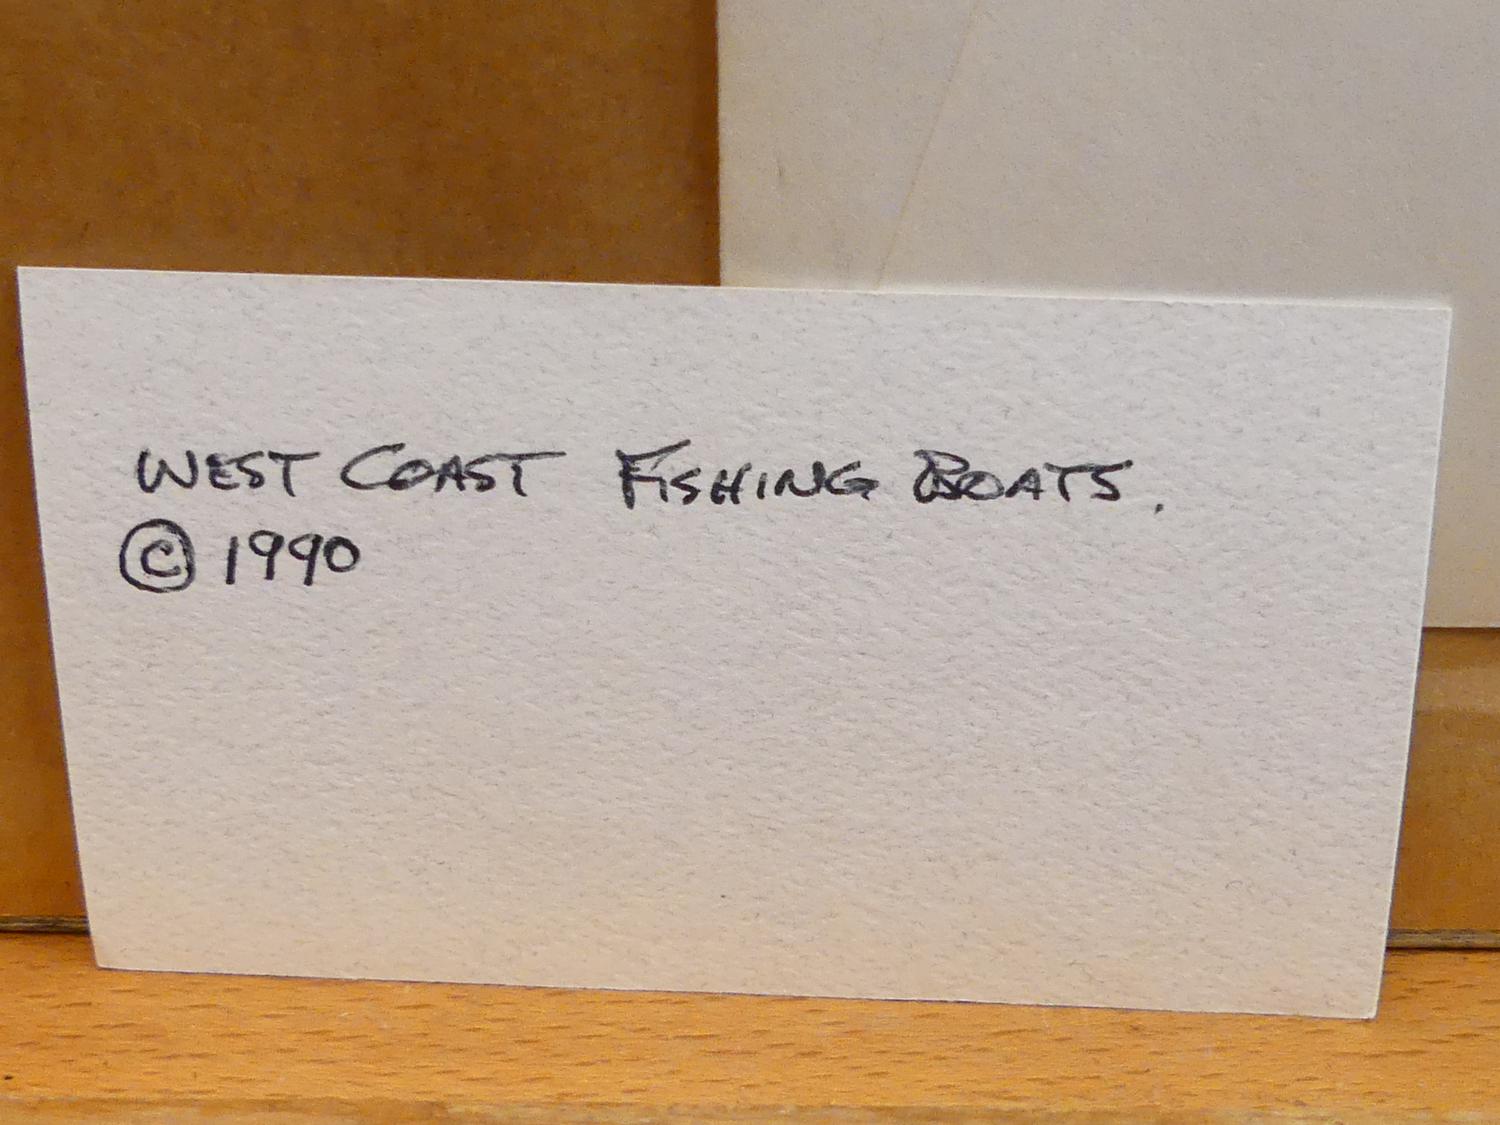 WEST COAST FISHING BOATS.
© 1990